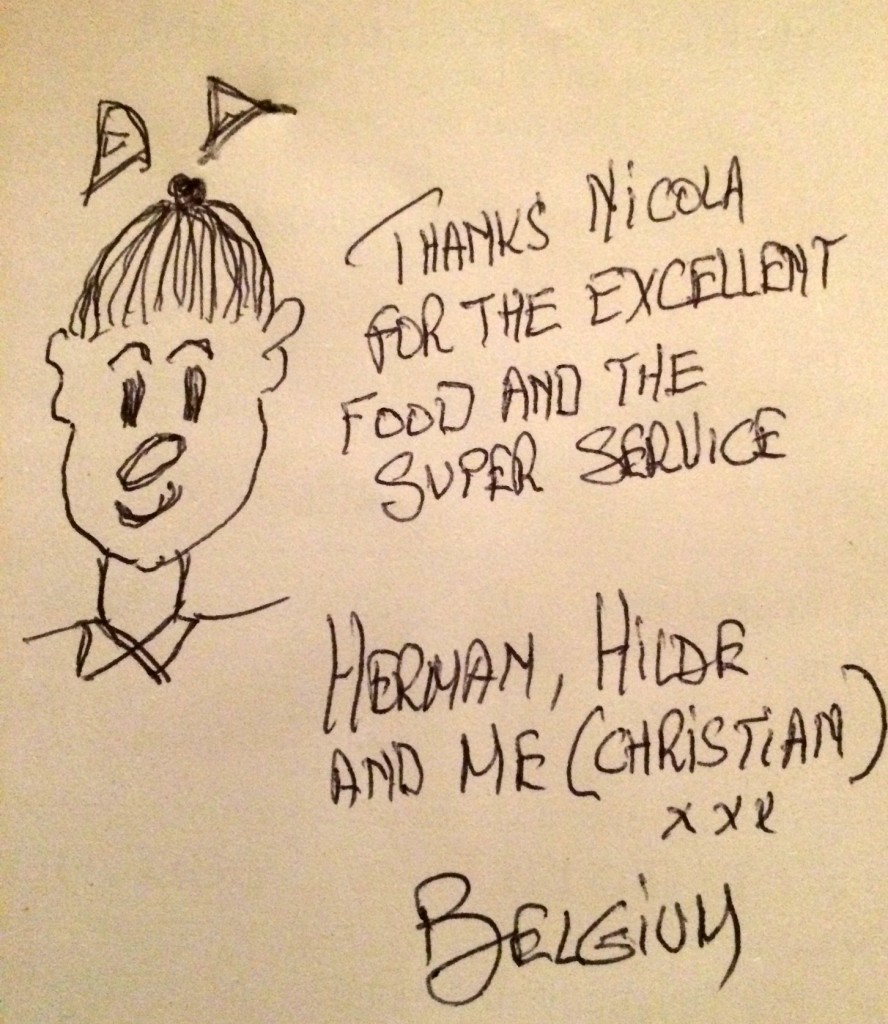 THANKS NICOLA
FOR THE EXCELLENT
FOOD AND THE
SUPER SERVICE
HERMAN, HILDE
AND ME (CHRISTIAN)
xxx
BELGIUM